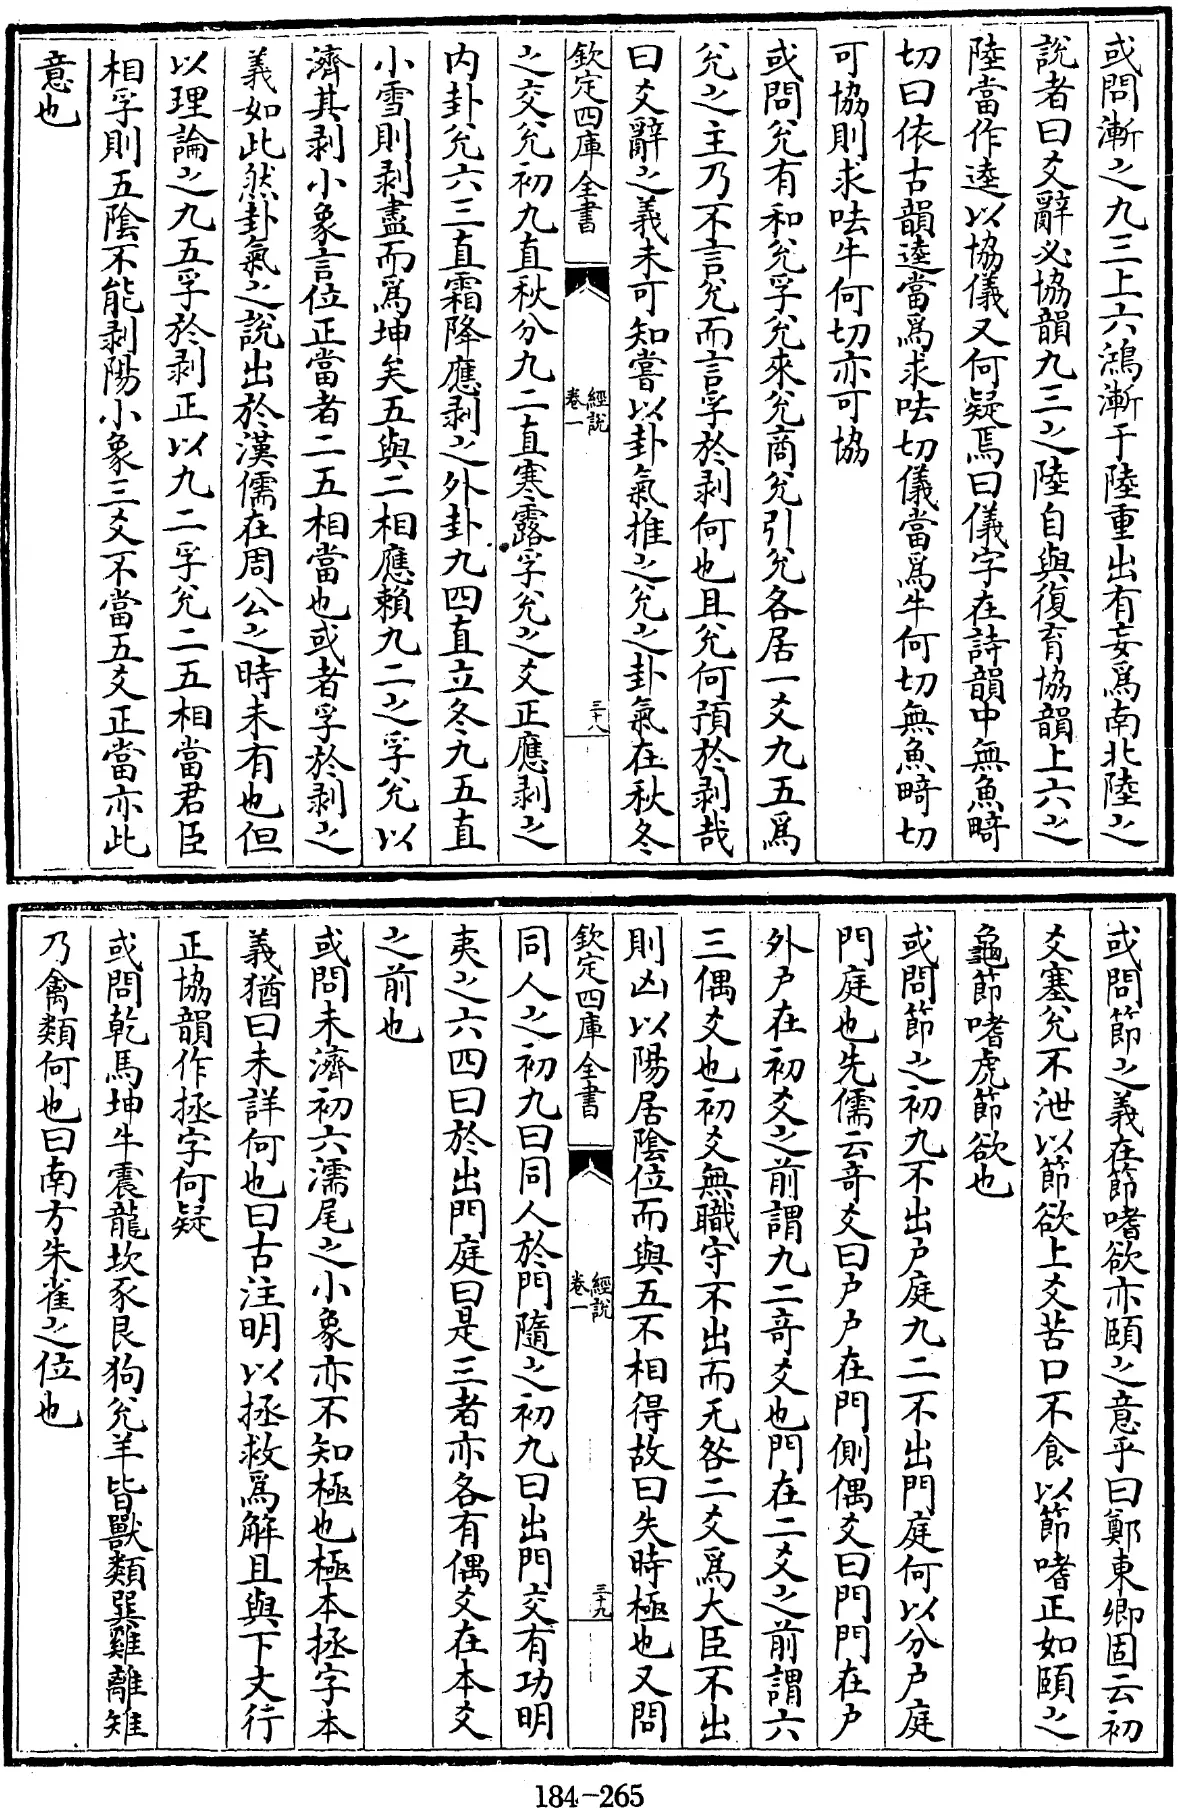 或問漸之九三上六鴻漸于陸重出有妄爲南北陸之
說者曰爻辭必協韻九三之陸自與復育協韻上六之
陸當作逵以協儀又何疑焉曰儀字在詩韻中無魚畸
切曰依古韻逵當爲求呿切儀當爲牛何切無魚畸切
可協則求呿牛何切亦可協
或問兌有和兌孚兌來兌商兌引兌各居一爻九五爲
兌之主乃不言兌而言孚於剥何也且兌何預於剥哉
曰爻辭之義未可知嘗以卦氣推之兌之卦氣在秋冬
欽定四庫全書
經說
卷一
三十八
之交兌初九直秋分九二直寒露孚兌之爻正應剥之
内卦兌六三直霜降應剥之外卦九四直立冬九五直
小雪則剥盡而爲坤矣五與二相應賴九二之孚兌以
濟其剥小象言位正當者二五相當也或者孚於剥之
義如此然卦氣之說出於漢儒在周公之時未有也但
以理論之九五孚於剥正以九二孚兌二五相當君臣
相孚則五陰不能剥陽小象三爻不當五爻正當亦此
意也
或問節之義在節嗜欲亦頤之意乎曰鄭東卿固云初
爻塞兌不泄以節欲上爻苦口不食以節嗜正如頤之
龜節嗜虎節欲也
或問節之初九不出户庭九二不出門庭何以分户庭
門庭也先儒云竒爻曰户户在門側偶爻曰門門在户
外户在初爻之前謂九二竒爻也門在二爻之前謂六
三偶爻也初爻無職守不出而无咎二爻爲大臣不出
則凶以陽居陰位而與五不相得故曰失時極也又問
欽定四庫全書
經說
卷一
三十九
同人之初九曰同人於門隨之初九曰出門交有功明
夷之六四曰於出門庭曰是三者亦各有偶爻在本爻
之前也
或問未濟初六濡尾之小象亦不知極也極本拯字本
義猶曰未詳何也曰古注明以拯救爲解且與下文行
正協韻作拯字何疑
或問乾馬坤牛震龍坎豕艮狗兌羊皆獸類巽雞離雉
乃禽類何也曰南方朱雀之位也
184-265